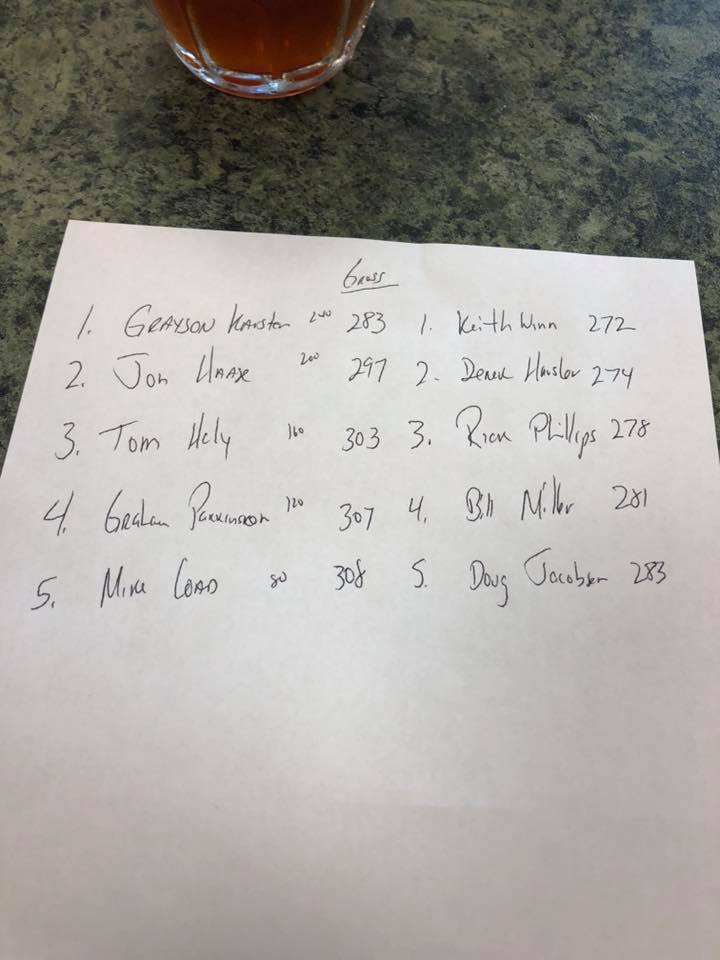 Gross
1. GRAYSON 240 283 1. Keith Winn 272
2. JON HAAX 200 297 2. Derek 274
3. Tom Hely 160 303 3. Rick Phillips 278
4. Graham Parkinson 120 307 4. Bill Miller 281
5. Mike 80 308 5. Doug Jacobsen 283